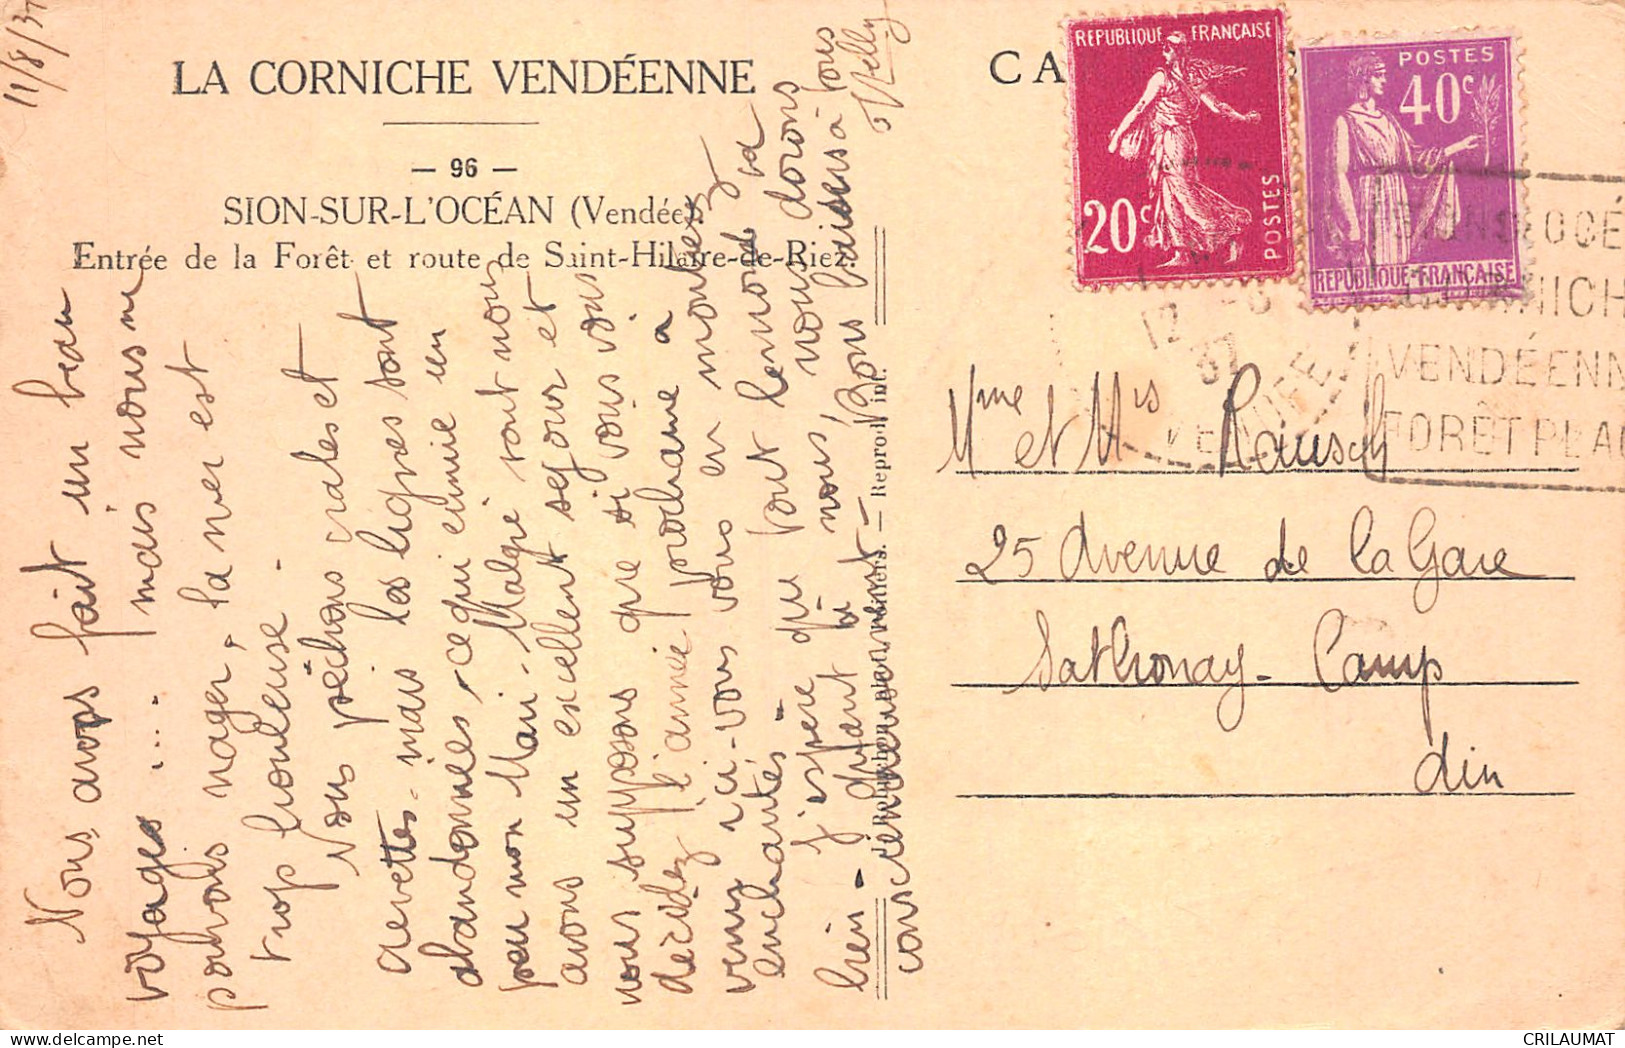 11/8/37
LA CORNICHE VENDÉENNE
— 96 —
SION-SUR-L'OCÉAN (Vendée).
Entrée de la Forêt et route de Saint-Hilaire-de-Riez.
Nous avons fait un beau
voyage .... mais nous ne
pouvons nager, la mer est
trop houleuse -
Nous pêchons crabes et
crevettes - mais les lignes sont
abandonnées, ce qui ennuie un
peu mon Mari - Malgré tout nous
avons un excellent séjour et
nous supposons que si vous vous
décidez l'année prochaine à
venir ici - vous vous en montrez
enchantés - tout le monde va
J'espère que nous nous dorons
bien - quant à nous,
consciencieusement -
Bons baisers à tous
Nelly
Reprod. int.
CA
REPUBLIQUE FRANÇAISE
20c
POSTES
POSTES
40c
REPUBLIQUE FRANÇAISE
12 -8
37
VENDÉE
OCÉ
NICH
VENDÉENN
FORÊT PLAG
Mme et Mrs Rausch
25 Avenue de la Gare
Sathonay - Camp
Ain
CRILAUMAT